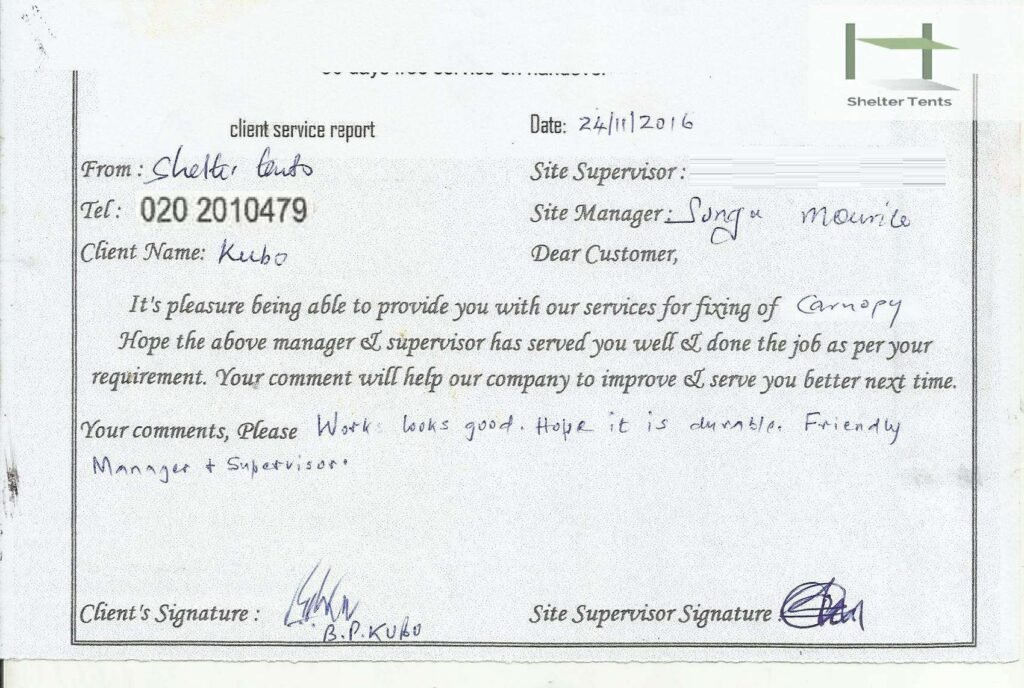 Shelter Tents
client service report
Date: 24/11/2016
From: Shelter tents
Site Supervisor:
Tel: 020 2010479
Site Manager:
Client Name: Kubo
Dear Customer,
It's pleasure being able to provide you with our services for fixing of Carnopy
Hope the above manager & supervisor has served you well & done the job as per your
requirement. Your comment will help our company to improve & serve you better next time.
Your comments, Please Work looks good. Hope it is durable. Friendly
Manager + Supervisor.
Client's Signature :
B.P. KUBO
Site Supervisor Signature